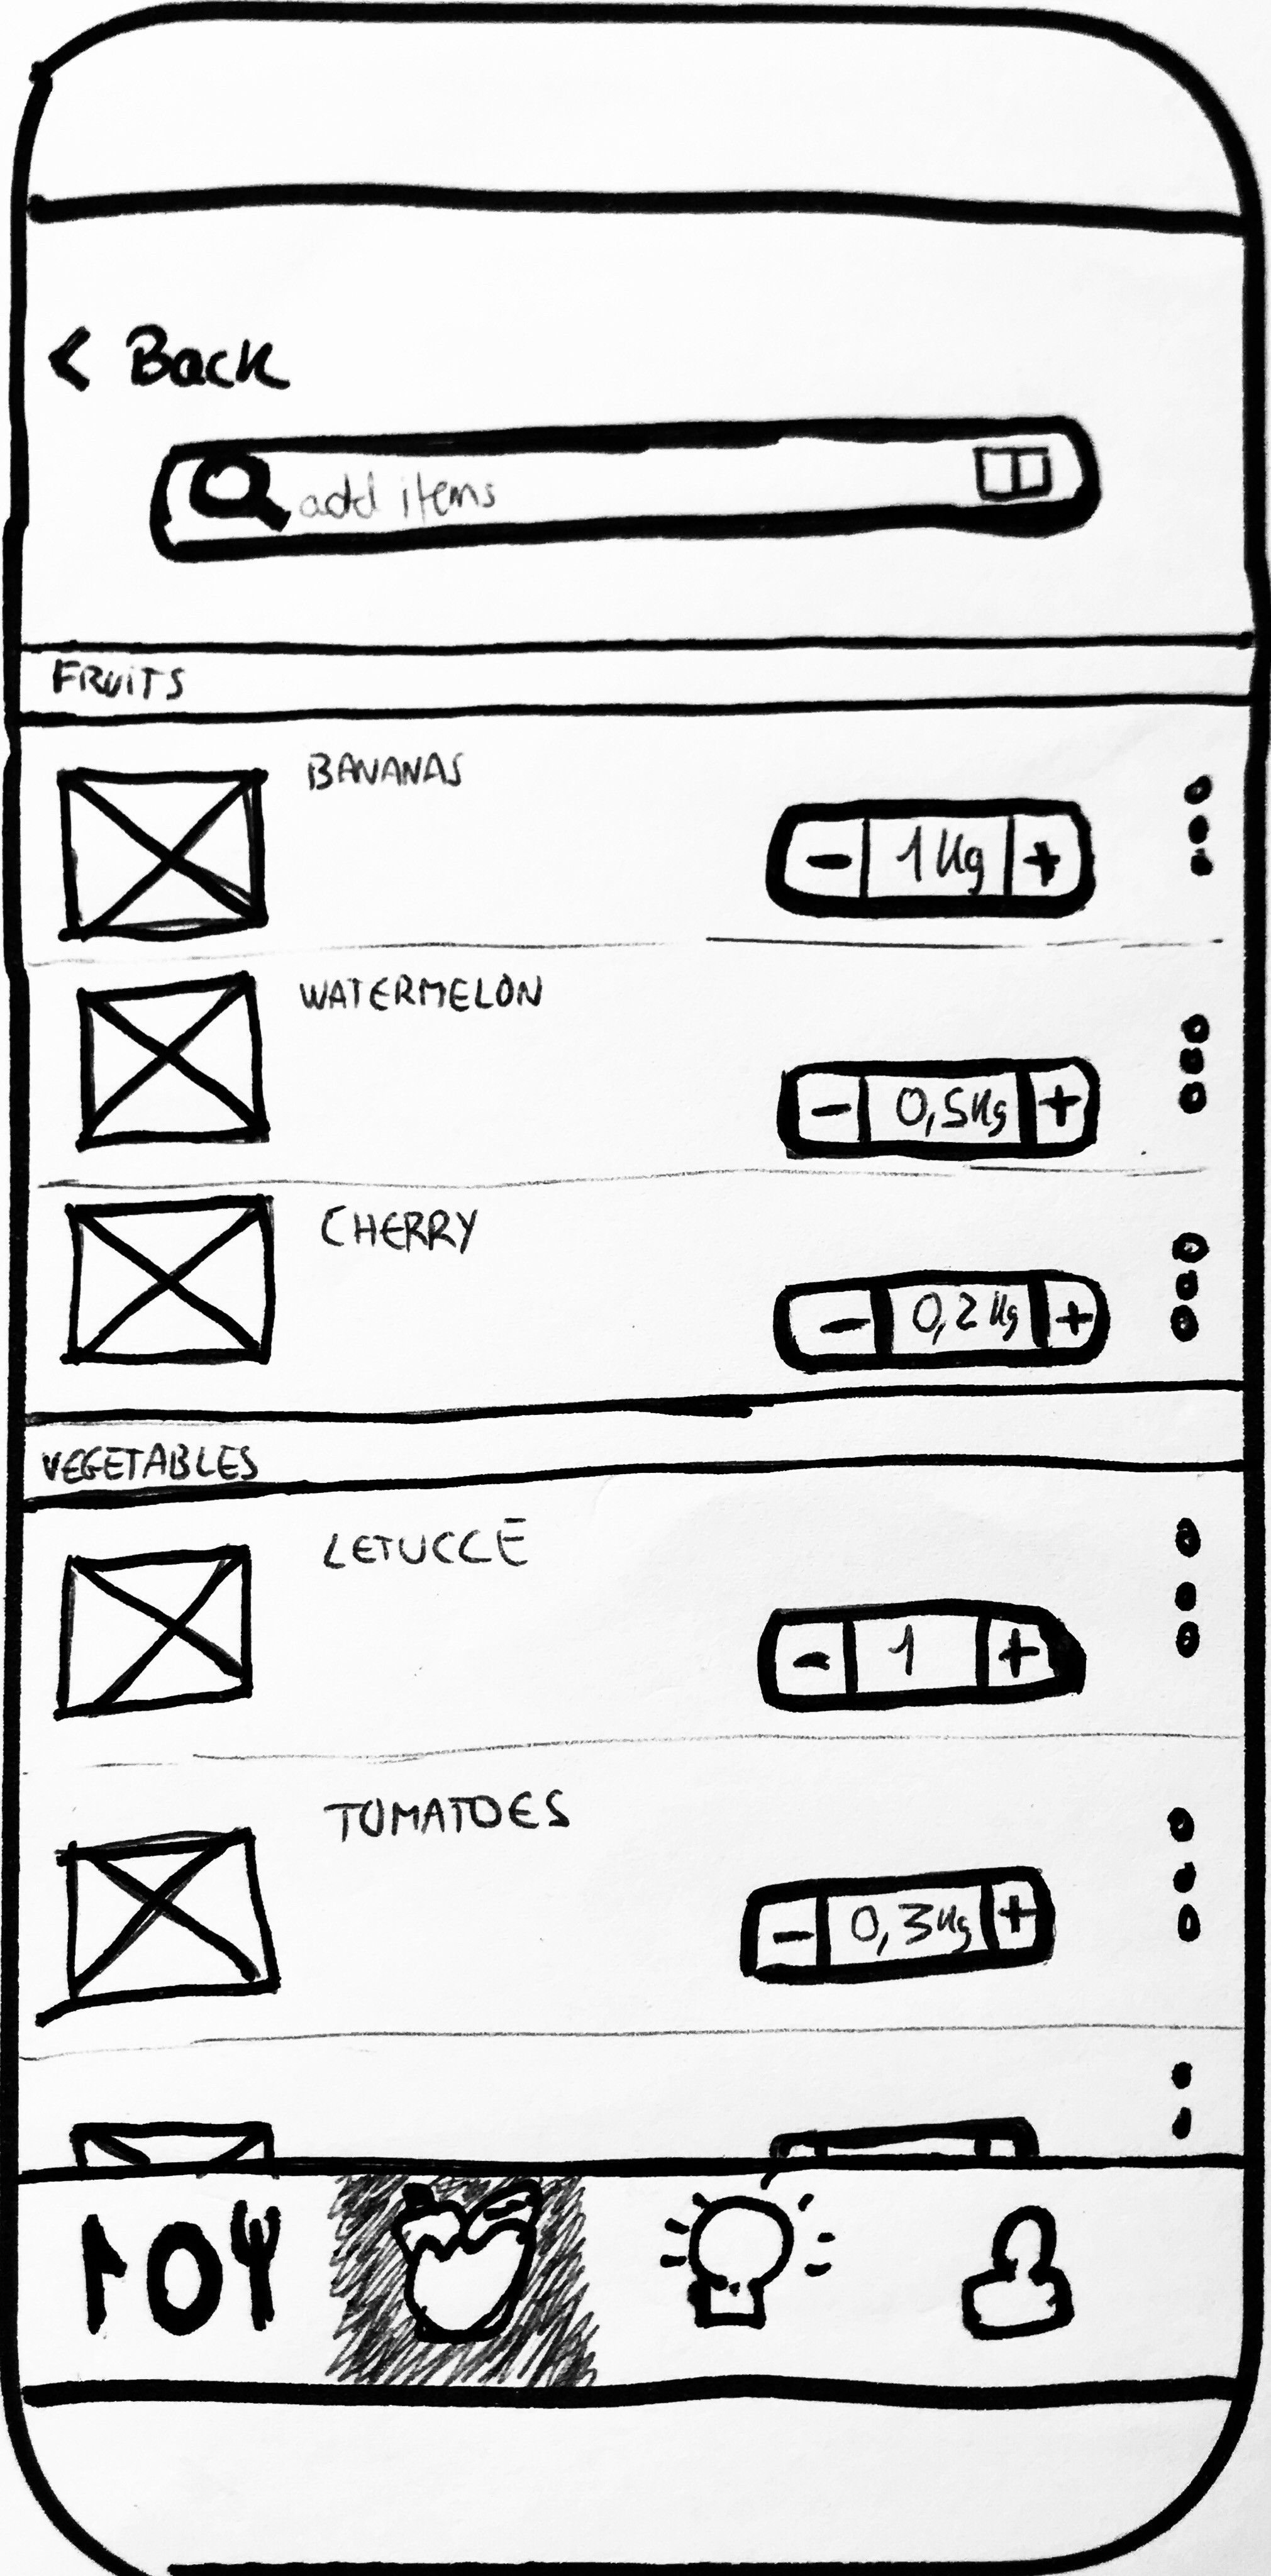 < Back
add items
FRUITS
BANANAS
- 1 Kg +
WATERMELON
- 0,5 Kg +
CHERRY
- 0,2 Kg +
VEGETABLES
LETUCCE
- 1 +
TOMATOES
- 0,3 Kg +